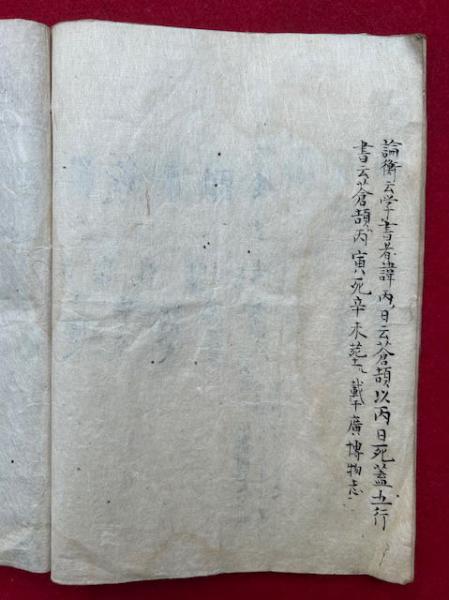 論衡云学書者諱丙日云蒼頡以丙日死蓋五行
書云蒼頡丙寅死辛未葬載于廣博物志